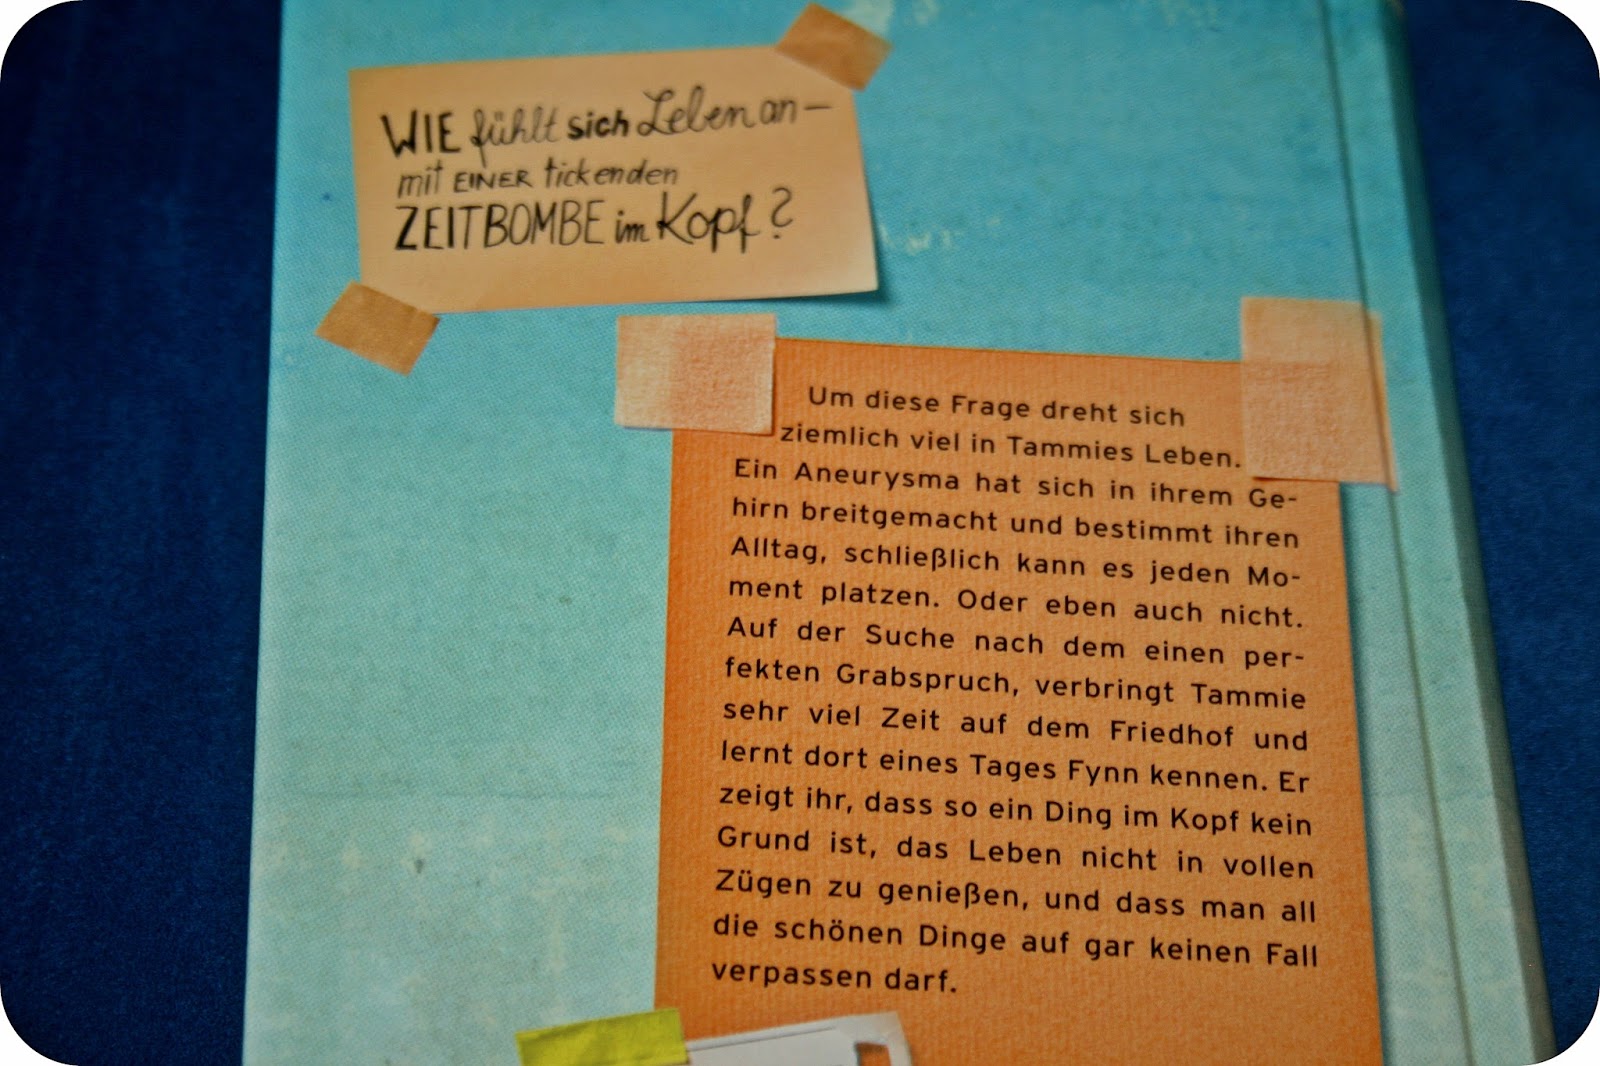 WIE fühlt sich Leben an –
mit EINER tickenden
ZEITBOMBE im Kopf?
Um diese Frage dreht sich
ziemlich viel in Tammies Leben.
Ein Aneurysma hat sich in ihrem Ge-
hirn breitgemacht und bestimmt ihren
Alltag, schließlich kann es jeden Mo-
ment platzen. Oder eben auch nicht.
Auf der Suche nach dem einen per-
fekten Grabspruch, verbringt Tammie
sehr viel Zeit auf dem Friedhof und
lernt dort eines Tages Fynn kennen. Er
zeigt ihr, dass so ein Ding im Kopf kein
Grund ist, das Leben nicht in vollen
Zügen zu genießen, und dass man all
die schönen Dinge auf gar keinen Fall
verpassen darf.